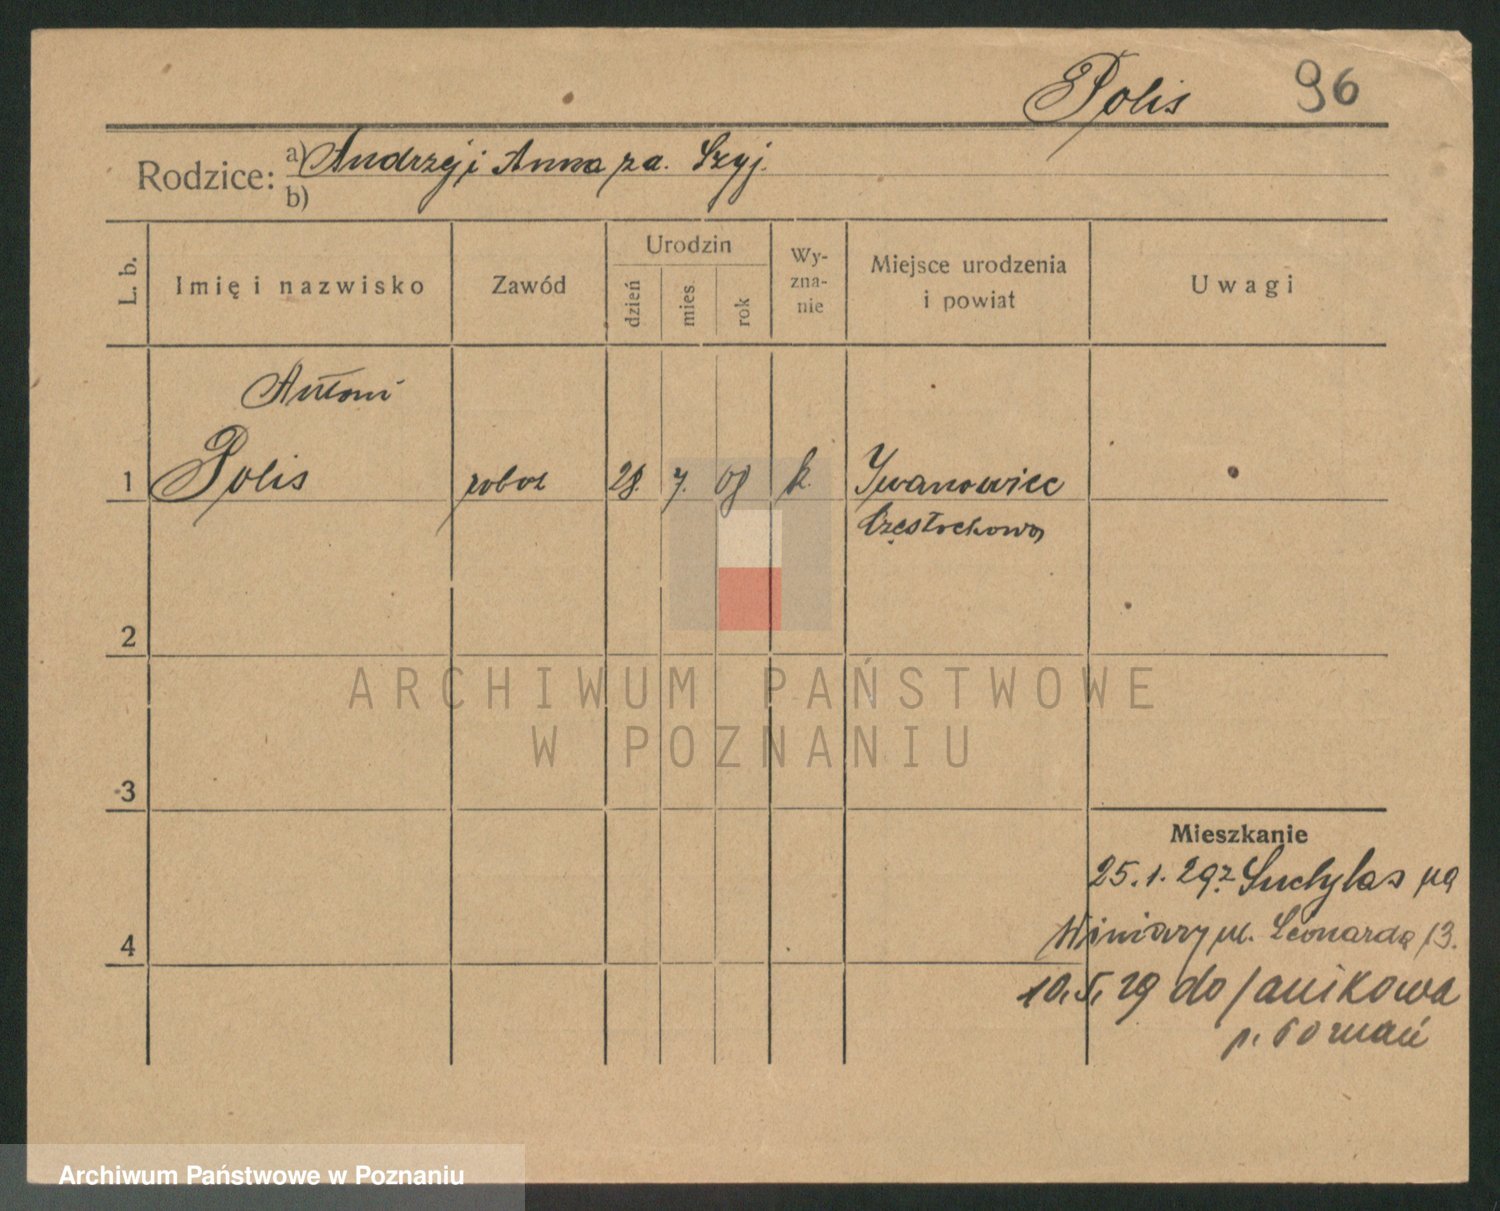 Polis 96
Rodzice: a) Andrzej i Anna za. Szyj.
b)
L. b.
Imię i nazwisko
Zawód
Urodzin
dzień
mies.
rok
Wy-
zna-
nie
Miejsce urodzenia
i powiat
Uwagi
Antoni
1 Polis robot 28. 7. 08 k. Iwanowice
Częstochowa
2
3
4
Mieszkanie
25.1.29 z Suchylas na
Winiary ul. Leonarda 13.
10.5.29 do Janikowa
p. Poznań
ARCHIWUM PAŃSTWOWE
W POZNANIU
Archiwum Państwowe w Poznaniu